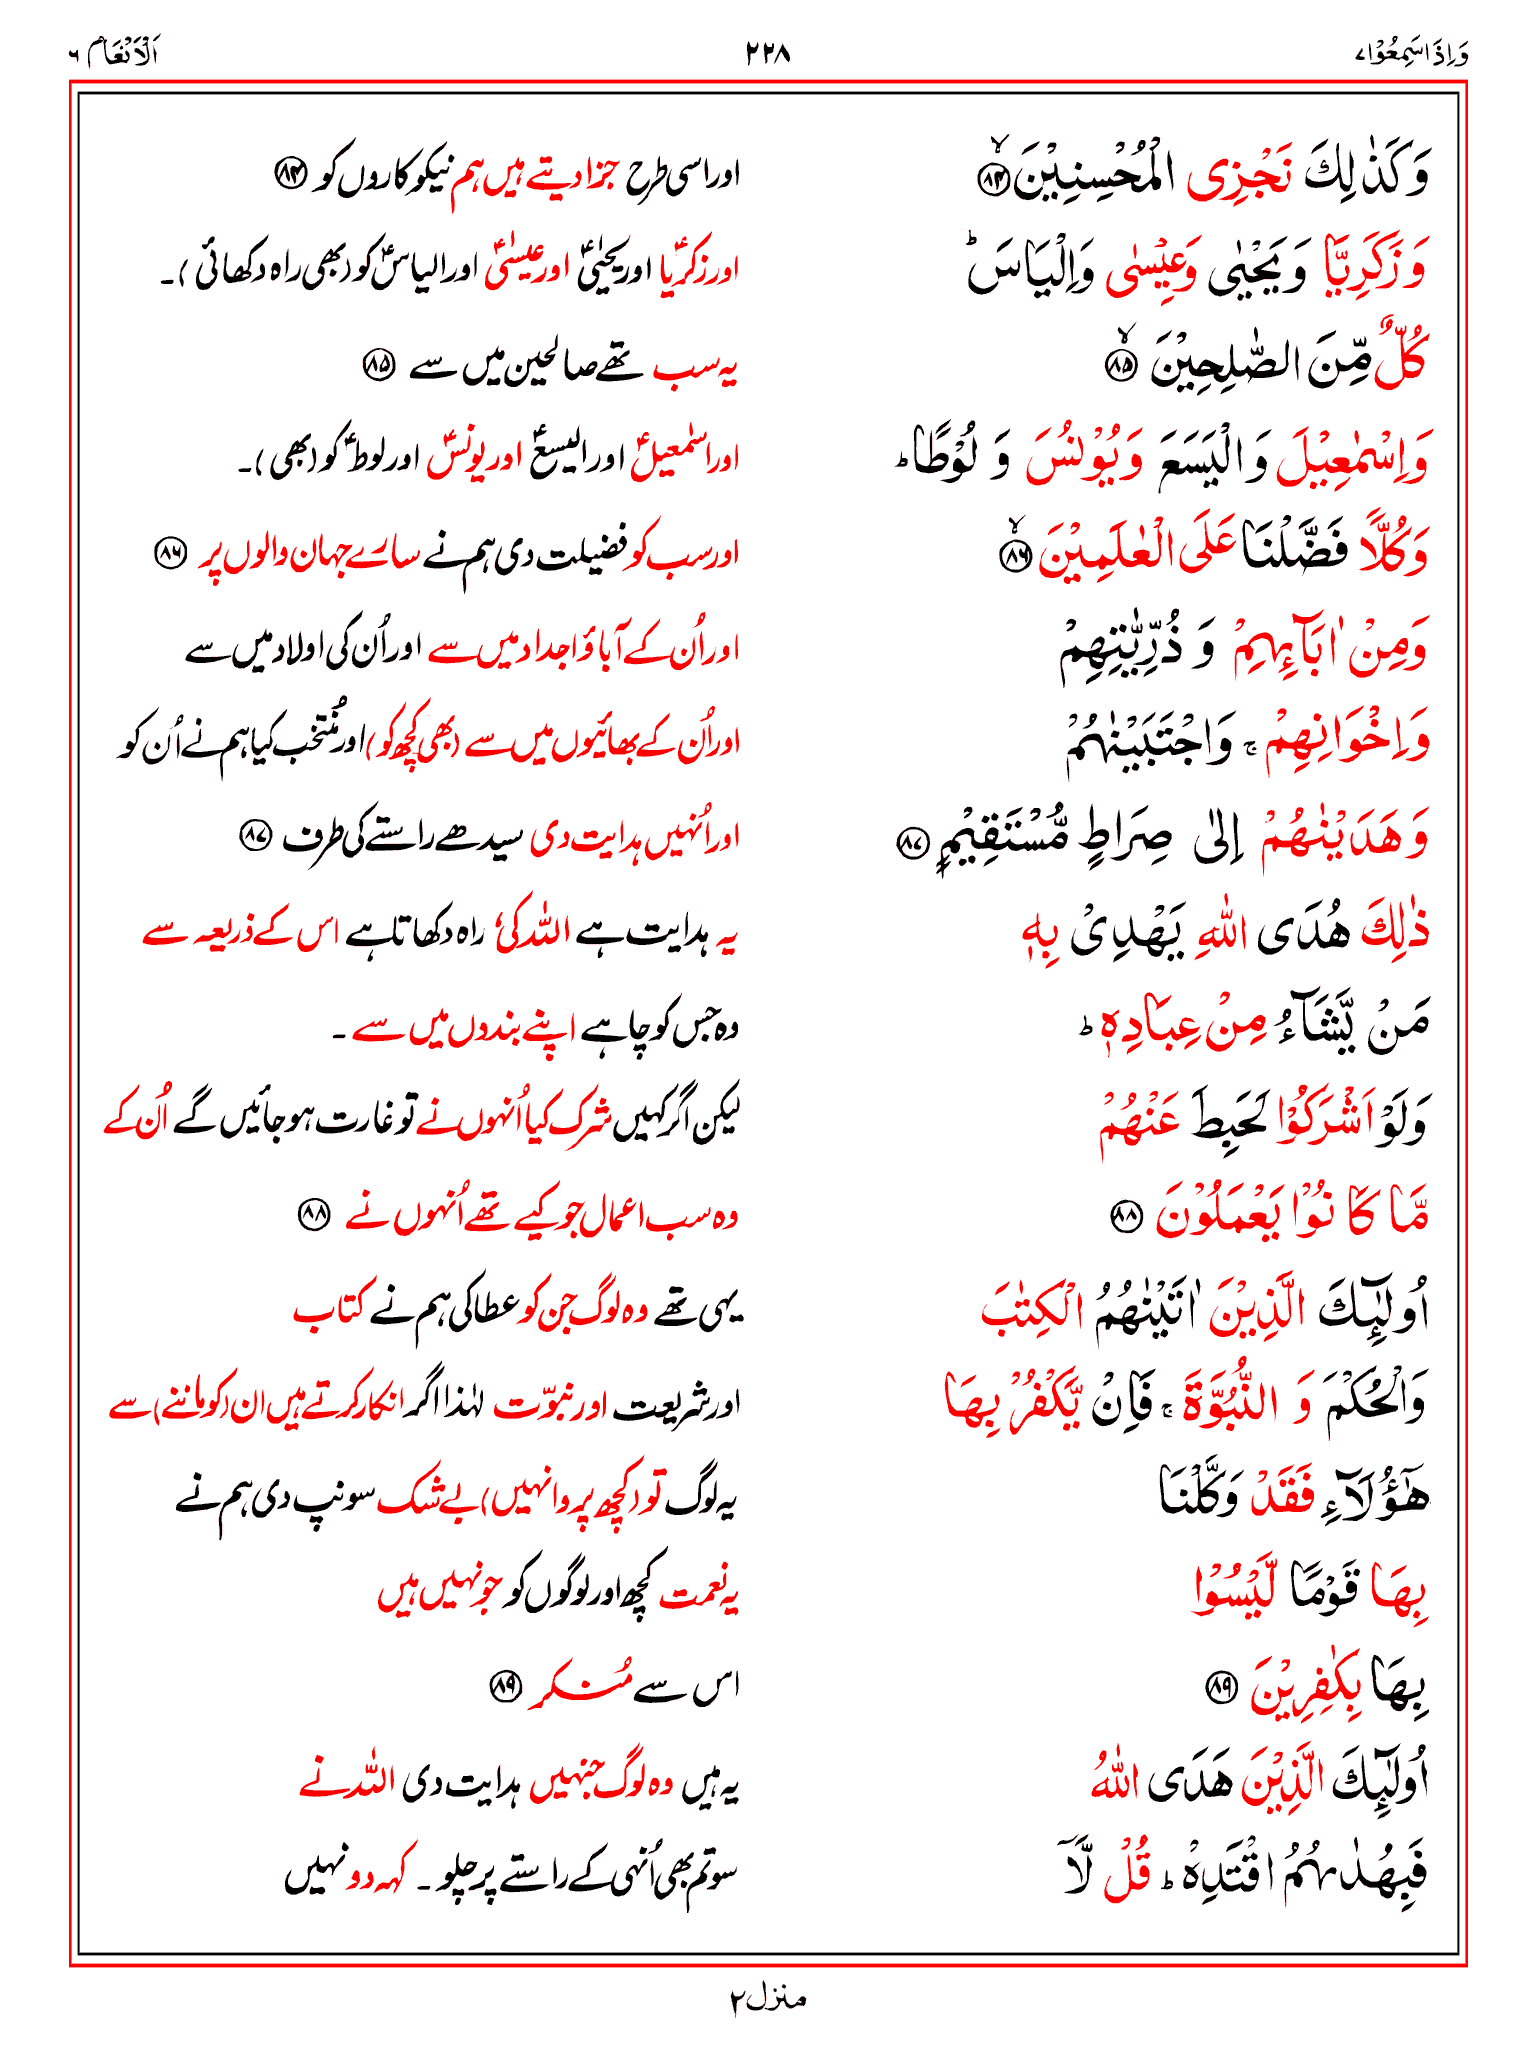 وَاِذَا سَمِعُوْا ۷ ۲۲۸ اَلْاَنْعَام ۶
وَكَذٰلِكَ نَجْزِی الْمُحْسِنِيْنَ ۙ﴿۸۴﴾ اور اسی طرح جزا دیتے ہیں ہم نیکو کاروں کو ﴿۸۴﴾
وَ زَكَرِيَّا وَ يَحْيٰی وَعِيْسٰی وَاِلْيَاسَ ؕ اور زکریاؑ اور یحییٰؑ اور عیسیٰؑ اور الیاسؑ کو (بھی راہ دکھائی)۔
كُلٌّ مِّنَ الصّٰلِحِيْنَ ۙ﴿۸۵﴾ یہ سب تھے صالحین میں سے ﴿۸۵﴾
وَاِسْمٰعِيْلَ وَ الْيَسَعَ وَيُوْنُسَ وَ لُوْطًا ؕ اور اسمٰعیلؑ اور الیسعؑ اور یونسؑ اور لوطؑ کو (بھی)۔
وَكُلًّا فَضَّلْنَا عَلَی الْعٰلَمِيْنَ ۙ﴿۸۶﴾ اور سب کو فضیلت دی ہم نے سارے جہان والوں پر ﴿۸۶﴾
وَمِنْ اٰبَآئِهِمْ وَ ذُرِّيّٰتِهِمْ اور اُن کے آباؤ اجداد میں سے اور اُن کی اولاد میں سے
وَاِخْوَانِهِمْ ۚ وَاجْتَبَيْنٰهُمْ اور اُن کے بھائیوں میں سے (بھی کچھ کو) اور مُنتخب کیا ہم نے اُن کو
وَهَدَيْنٰهُمْ اِلٰی صِرَاطٍ مُّسْتَقِيْمٍ ﴿۸۷﴾ اور اُنہیں ہدایت دی سیدھے راستے کی طرف ﴿۸۷﴾
ذٰلِكَ هُدَی اللّٰهِ يَهْدِیْ بِهٖ یہ ہدایت ہے اللہ کی، راہ دکھاتا ہے اس کے ذریعہ سے
مَنْ يَّشَآءُ مِنْ عِبَادِهٖ ؕ وہ جس کو چاہے اپنے بندوں میں سے ۔
وَلَوْ اَشْرَكُوْا لَحَبِطَ عَنْهُمْ لیکن اگر کہیں شرک کیا اُنہوں نے تو غارت ہو جائیں گے اُن کے
مَّا كَانُوْا يَعْمَلُوْنَ ﴿۸۸﴾ وہ سب اعمال جو کیے تھے اُنہوں نے ﴿۸۸﴾
اُولٰٓئِكَ الَّذِيْنَ اٰتَيْنٰهُمُ الْكِتٰبَ یہی تھے وہ لوگ جن کو عطا کی ہم نے کتاب
وَالْحُكْمَ وَ النُّبُوَّةَ ۚ فَاِنْ يَّكْفُرْ بِهَا اور شریعت اور نبوّت لہٰذا اگر انکار کرتے ہیں ان (کو ماننے) سے
هٰٓؤُلَآءِ فَقَدْ وَكَّلْنَا یہ لوگ تو (کچھ پروا نہیں) بے شک سونپ دی ہم نے
بِهَا قَوْمًا لَّيْسُوْا یہ نعمت کچھ اور لوگوں کو جو نہیں ہیں
بِهَا بِكٰفِرِيْنَ ﴿۸۹﴾ اس سے مُنکر ﴿۸۹﴾
اُولٰٓئِكَ الَّذِيْنَ هَدَی اللّٰهُ یہ ہیں وہ لوگ جنہیں ہدایت دی اللہ نے
فَبِهُدٰىهُمُ اقْتَدِهْ ؕ قُلْ لَّآ سو تم بھی اُنہی کے راستے پر چلو ۔ کہہ دو نہیں
منزل ۲